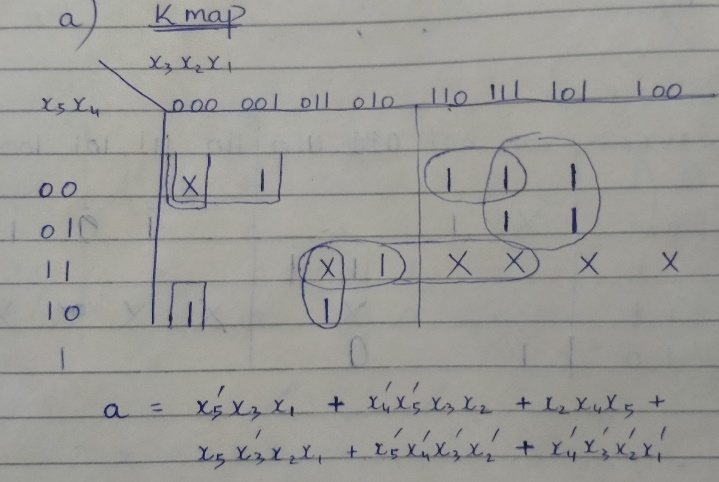 a) K map
x₃ x₂ x₁
x₅ x₄ 000 001 011 010 110 111 101 100
00 X 1 1 1 1
01 1 1
11 X 1 X X X X
10 1 1
a = x₅' x₃ x₁ + x₄' x₅' x₃ x₂ + x₂ x₄ x₅ +
x₅ x₃' x₂ x₁ + x₅' x₄' x₃' x₂' + x₄' x₃' x₂' x₁'